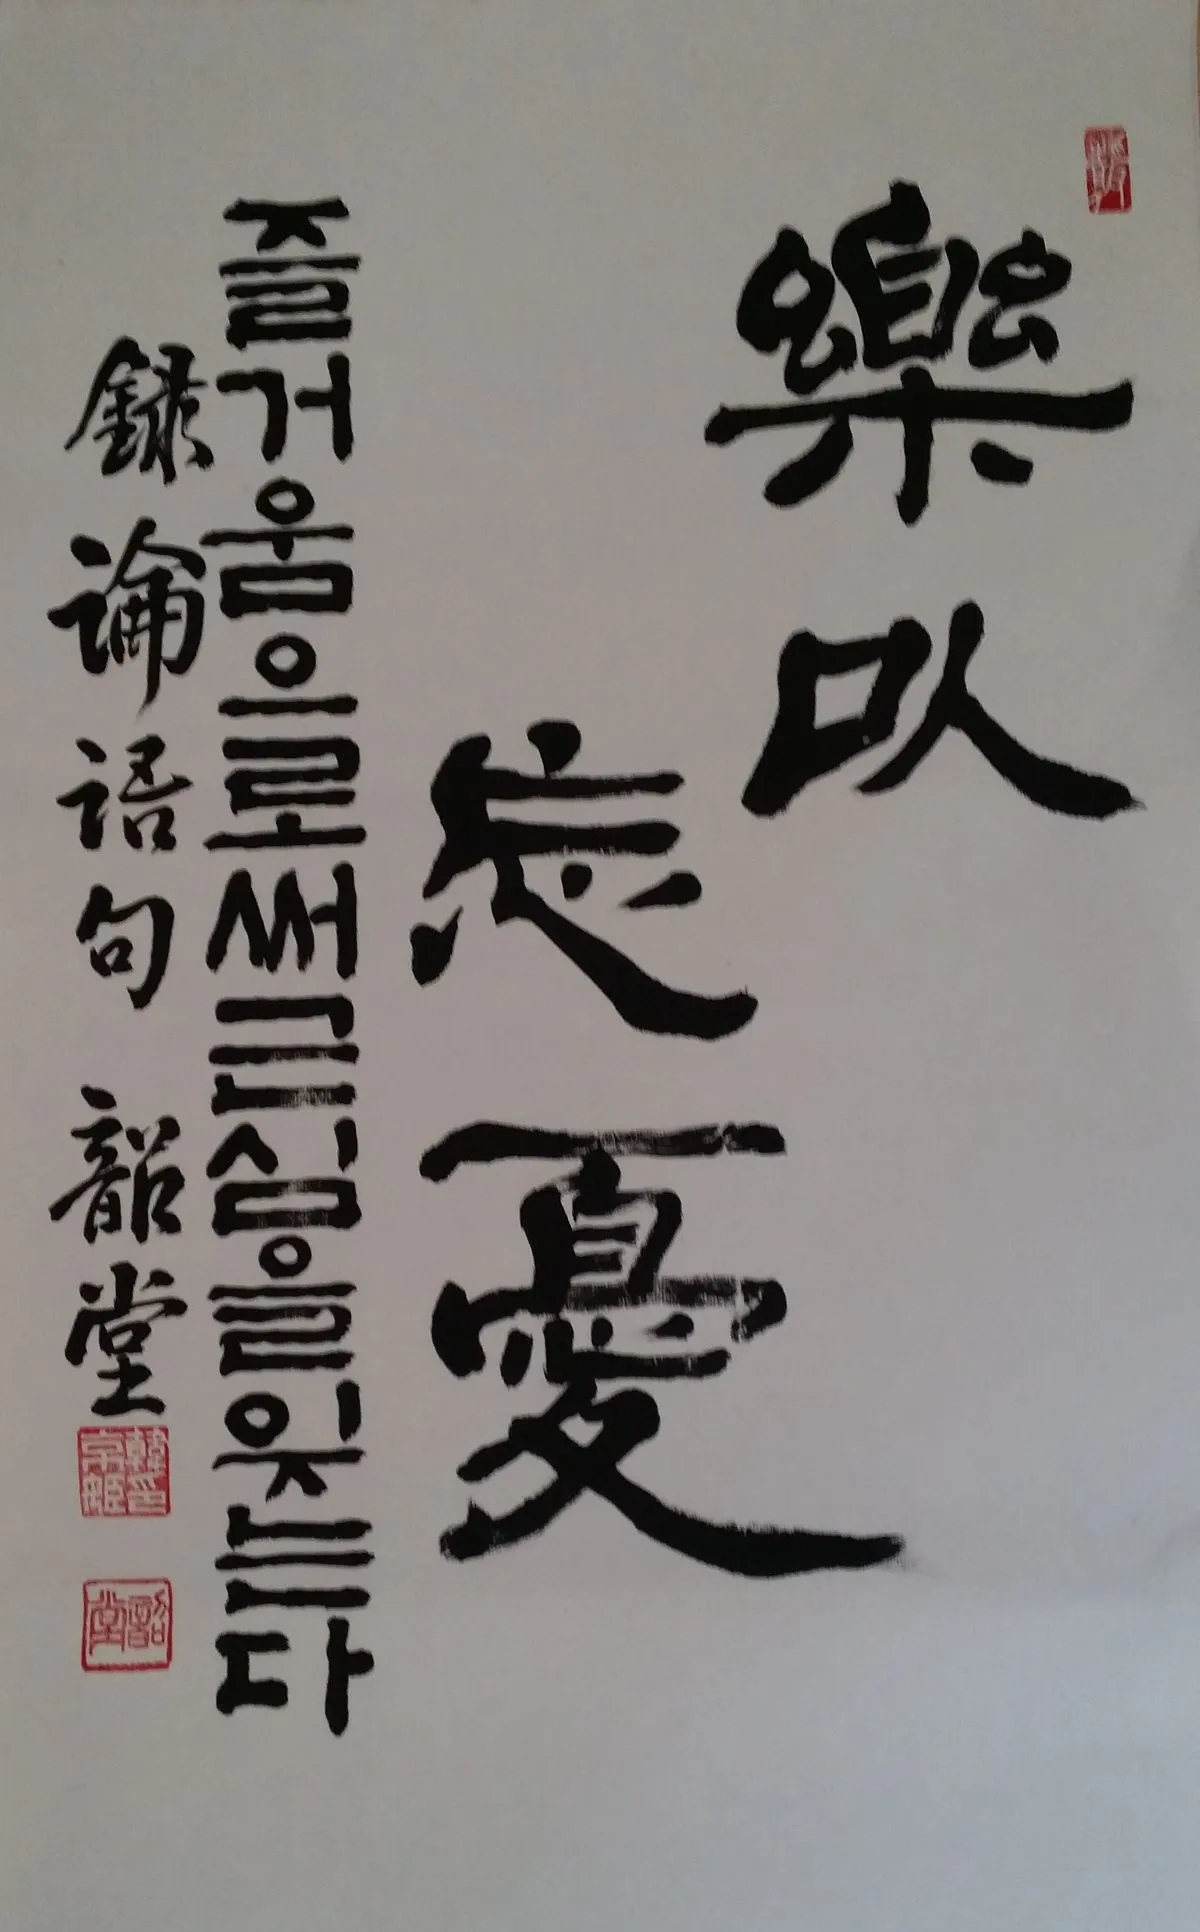 樂以
忘憂
즐거움으로써근심을잊는다
錄論語句 韶堂
韶堂